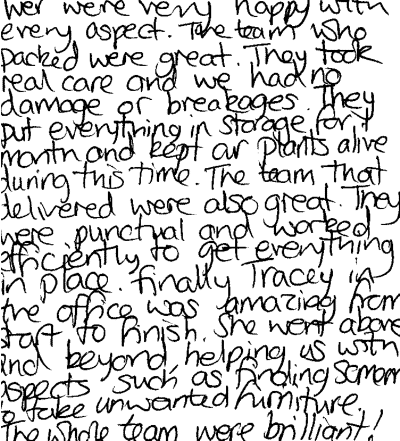 wer were very happy with
every aspect. The team who
packed were great. They took
real care and we had no
damage or breakages. They
put everything in storage for 1
month and kept our plants alive
during this time. The team that
delivered were also great. They
were punctual and worked
efficiently to get everything
in place. Finally Tracey in
the office was amazing from
start to finish. She went above
and beyond, helping us with
aspects such as finding someone
to take unwanted furniture.
The whole team were brilliant!